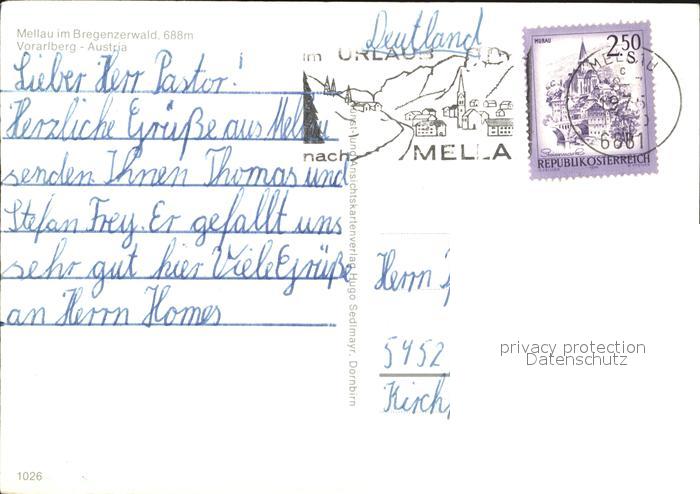 Mellau im Bregenzerwald, 688m
Vorarlberg - Austria
Lieber Herr Pastor!
Herzliche Grüße aus Mellau
senden Ihnen Thomas und
Stefan Frey. Er gefällt uns
sehr gut hier Viele Grüße
an Herrn Homes
1026
Ansichtskartenverlag Hugo Sedlmayr, Dornbirn
Deutland
im URLAUB
nach MELLA
MURAU
2.50
REPUBLIK ÖSTERREICH
MELLAU
6881
Herrn
5452
Kirch
privacy protection
Datenschutz